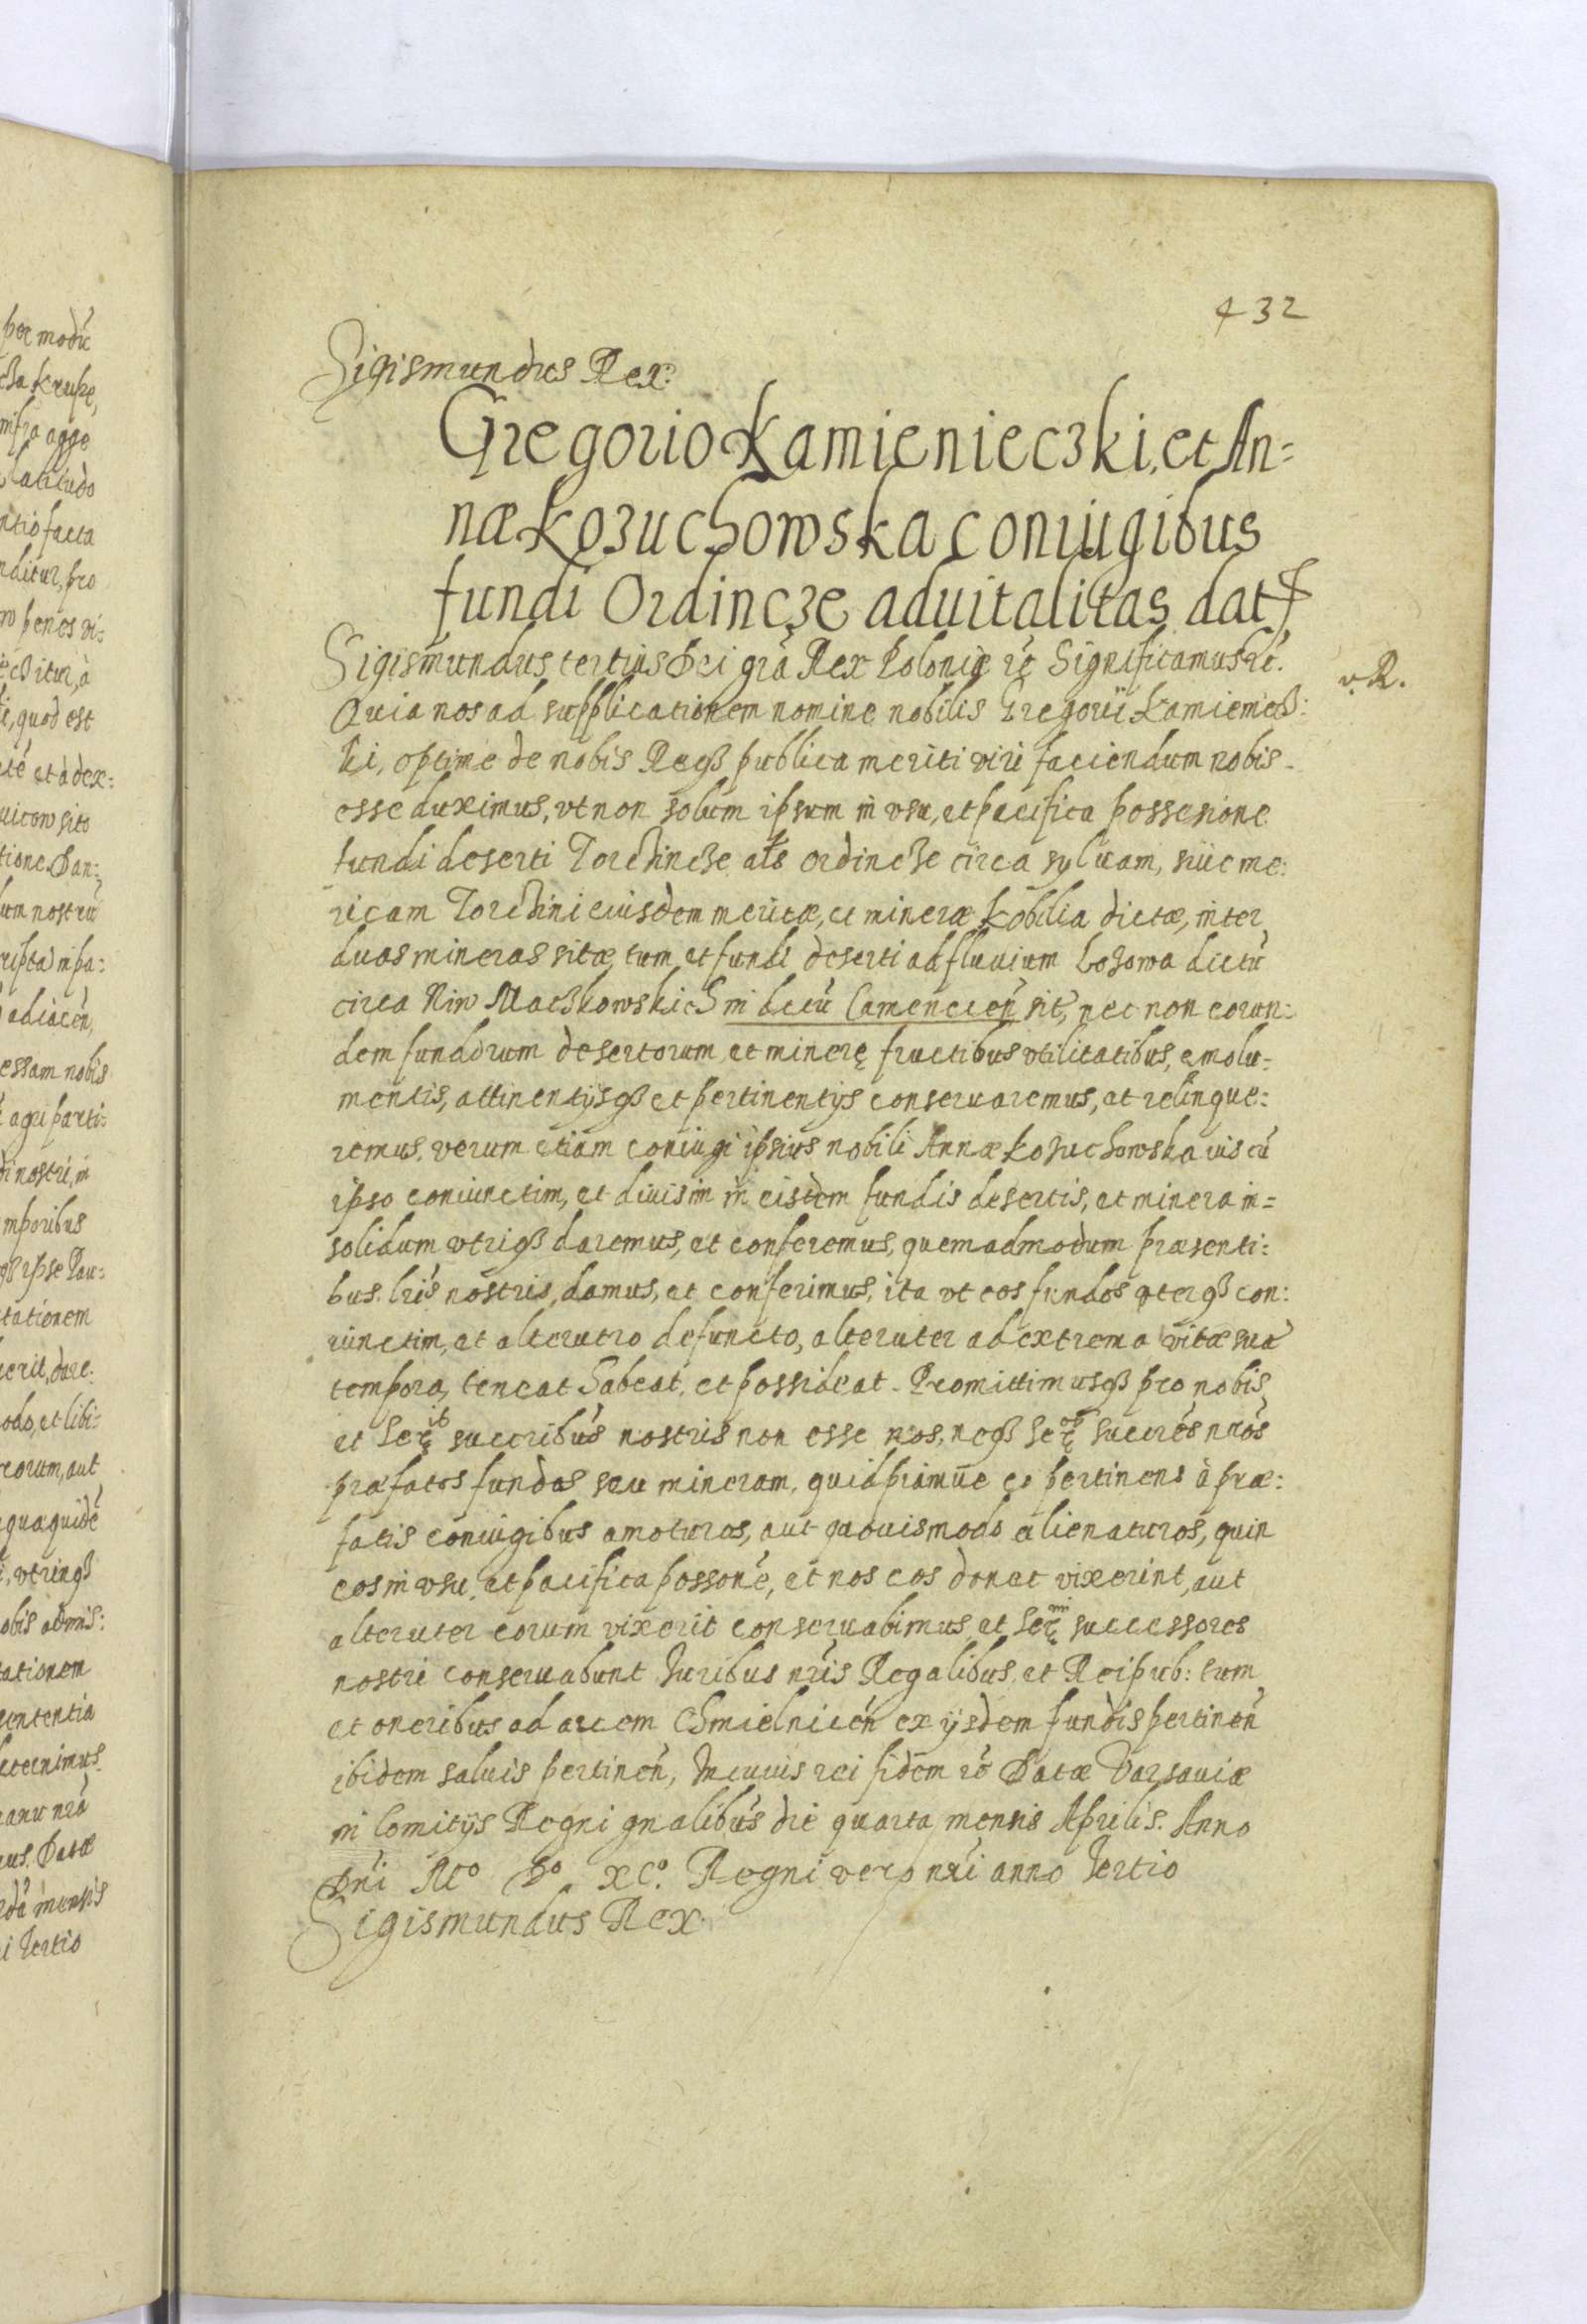 432
Sigismundus Rex.
Gregorio Kamienieczki, et An=
næ Kozuchowska coniugibus
fundi Ordincze aduitalitas dat
Sigismundus tertius Dei gra Rex Poloniæ rc Significamus rc.
v. R.
Quia nos ad supplicationem nomine nobilis Gregorii Kamieniecz:
ki, optime de nobis Reqȝ publica meriti viri faciendum nobis
esse duximus, vt non solum ipsum in vsu, et pacifica possesione
fundi deserti Torchincze als ordincze circa syluam, siue me:
ricam Torchini eiusdem mericæ, et mineræ Kobilia dictæ, inter
duas mineras sitæ tum et fundi deserti ad fluuium Lozowa dictu
circa Niw Maczkowskich in dctu Camenecen sit, nec non eorun:
dem fundorum desertorum et minerę fructibus vtilitatibus, emolu=
mentis, attinentijsqȝ et pertinentijs conseruaremus, et relinque:
remus, verum etiam coniugi ipsius nobili Annæ Kozuchowska ius cu
ipso coniunctim, et diuisim in eisdem fundis desertis, et minera in=
solidum vtriqȝ daremus, et conferemus, quemadmodum præsenti:
bus lris nostris, damus, et conferimus, ita vt eos fundos vterqȝ con:
iunctim, et alterutro defuncto, alteruter ad extrema vitæ suæ
tempora, teneat habeat, et possideat. Promittimusqȝ pro nobis
et Ser ib succribus nostris non esse nos, neqȝ Ser os succres nros
præfatos fundos seu mineram, quidpiamue eo pertinens à præ:
fatis coniugibus amoturos, aut quouismodo alienaturos, quin
eos in vsu, et pacifica possone, et nos eos donec vixerint, aut
alteruter eorum vixerit conseruabimus et Ser mi successores
nostri conseruabunt Iuribus nris Regalibus, et Reipub: tum
et oneribus ad arcem Chmielnicen ex ijsdem fundis pertinen
ibidem saluis pertinen, In cuius rei fidem rc Datæ Varsauiæ
in Comitijs Regni gnalibus die quarta mensis Aprilis. Anno
Dni Mo Do xCo. Regni vero nri anno tertio
Sigismundus Rex.